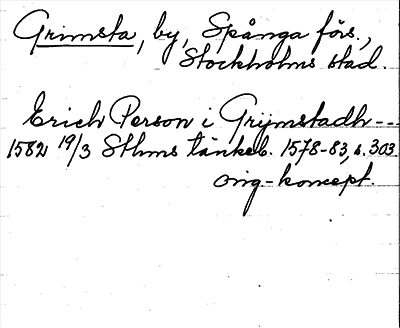 Grimsta, by, Spånga förs.,
Stockholms stad.
Erich Person i Grijmstadh ---
1582 19/3 Sthms tänkeb. 1578-83, s. 303.
orig-koncept.